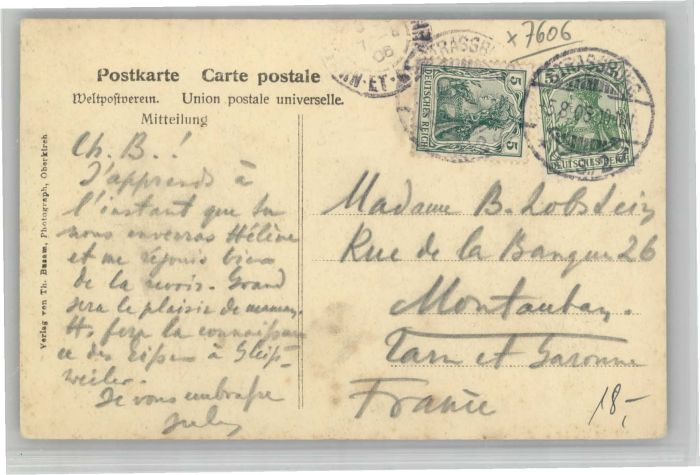 x 7606
Postkarte Carte postale
Weltpostverein. Union postale universelle.
Mitteilung
STRASSBURG
5
DEUTSCHES REICH
5
STRASSBURG
DEUTSCHES REICH
ET
Ch. B.!
J'apprends à
l'instant que tu
nous enverras Hélène
et me réjouis bien
de la revoir. Grand
sera le plaisir de maman.
H. fera la connaissan
ce des à Gleiß-
weiler.
Je vous embraſse
Madame B. Lobstein
Rue de la Banque 26
Montauban.
Tarn et Garonne
France
18,-
Verlag von Th. Bauam, Photograph, Oberkirch